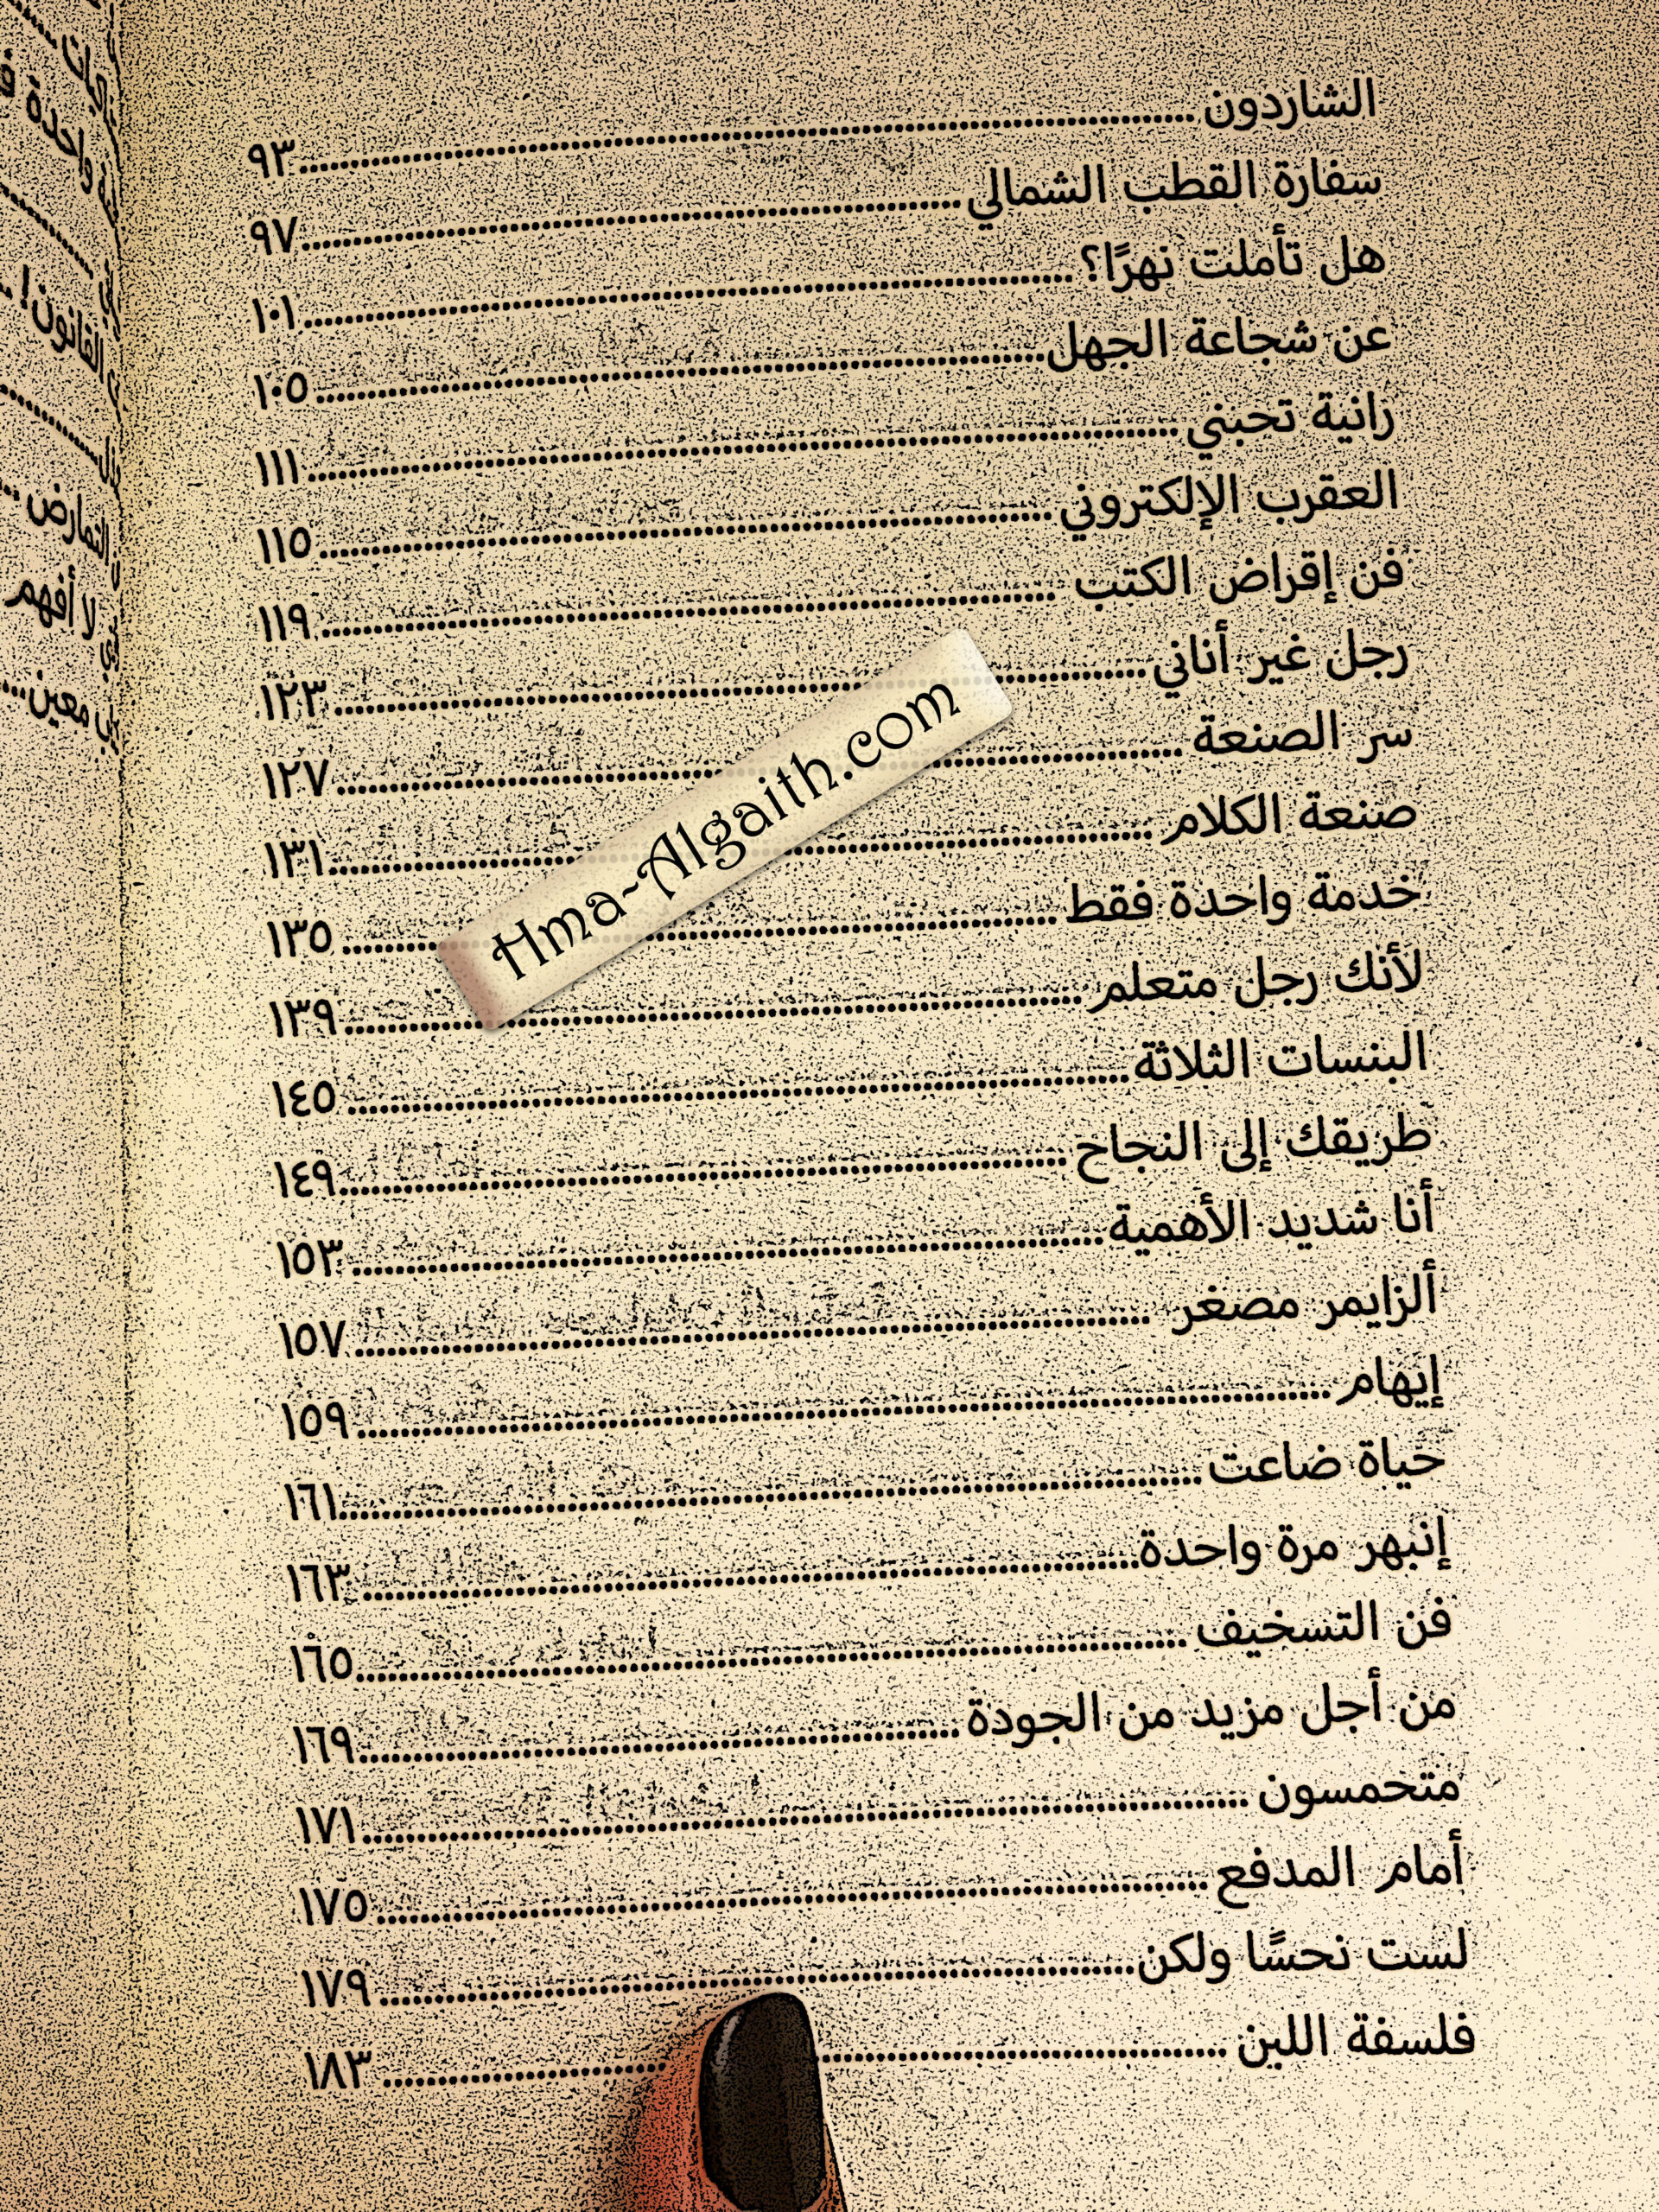 الشاردون ........ ٩٣
سفارة القطب الشمالي ........ ٩٧
هل تأملت نهرًا؟ ........ ١٠١
عن شجاعة الجهل ........ ١٠٥
رانية تحبني ........ ١١١
العقرب الإلكتروني ........ ١١٥
فن إقراض الكتب ........ ١١٩
رجل غير أناني ........ ١٢٣
سر الصنعة ........ ١٢٧
صنعة الكلام ........ ١٣١
خدمة واحدة فقط ........ ١٣٥
لأنك رجل متعلم ........ ١٣٩
البنسات الثلاثة ........ ١٤٥
طريقك إلى النجاح ........ ١٤٩
أنا شديد الأهمية ........ ١٥٣
ألزايمر مصغر ........ ١٥٧
إيهام ........ ١٥٩
حياة ضاعت ........ ١٦١
إنبهر مرة واحدة ........ ١٦٣
فن التسخيف ........ ١٦٥
من أجل مزيد من الجودة ........ ١٦٩
متحمسون ........ ١٧١
أمام المدفع ........ ١٧٥
لست نحسًا ولكن ........ ١٧٩
فلسفة اللين ........ ١٨٣
Hma~Algaith.com
واحدة
القانون!
التمارض
لا أفهم
معين